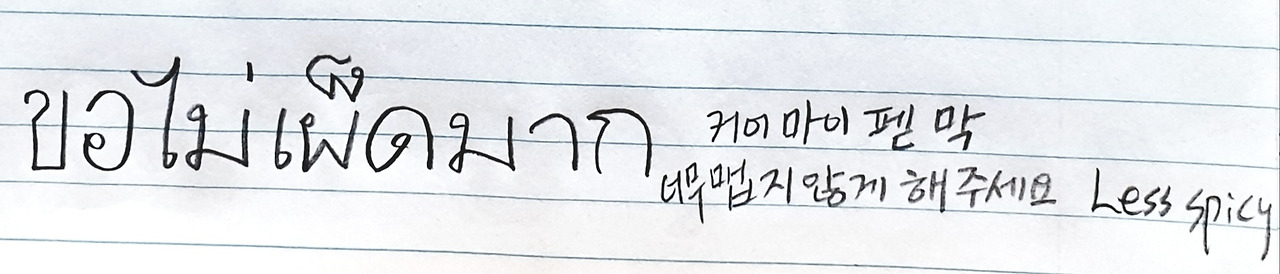 ขอไม่เผ็ดมาก 커어 마이 펟 막
너무 맵지 않게 해주세요 Less spicy